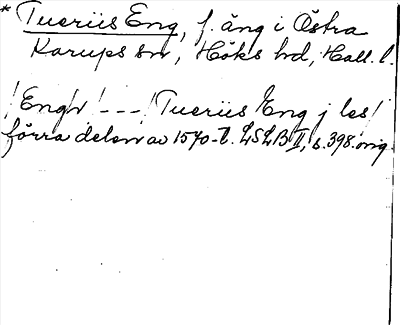 * Tueriis Eng, f. äng i Östra
Karups sn, Höks hd, Hall. l.
/Engh/ --- /Tueriis Eng j les/
förra delen av 1570-t. LSLB II, s. 398. orig.